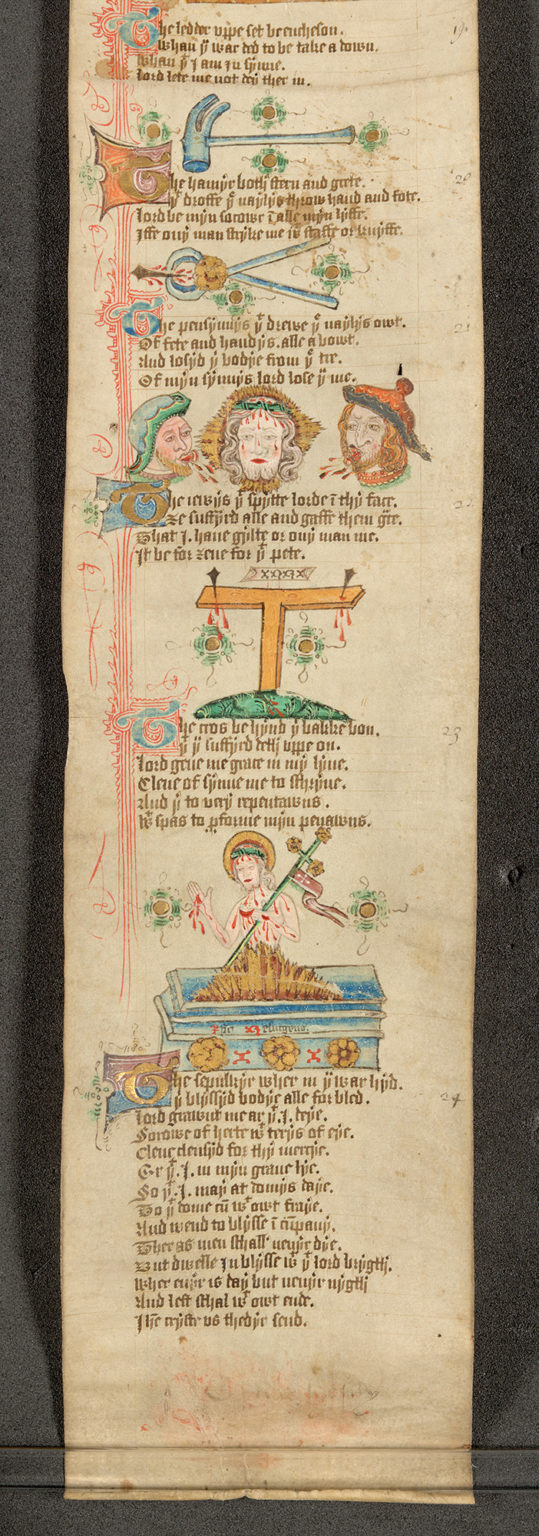 The ledder vppe set be encheson.
Whan yͤ war ded to be take a down.
Whan yͭ I am in synne.
lord lete me not dey ther in.
19.
The hamyr both stern and grete.
yͭ droffe yͤ naylys throw hand and fote.
lord be myn socowr ī alle myn lyffe.
Iffe ony man stryke me wͭ staffe or knyffe.
20
The pensynnys yͭ drewe yͤ naylys owt.
Of fete and handys. alle a bowt.
And losyd yͤ bodye from yͤ tre.
Of myn synnys lord lose yͧ me.
21
The iewys yͭ spytte lorde ī thy face.
Ze suffyrd alle and gaffe them gͣce.
That I. haue gylte or ony man me.
It be for zeue for yͭ pete.
22
The cros be hynd yͤ bakke bon.
yͭ yͧ suffyrd deth vppe on.
lord geue me grace in my lyue.
Clene of synne me to schryue.
And yͭ to very repentawns.
Wͭ spas to pforme myn penawns.
23
ihc xp̄c resurgens.
The sepulkyr wher in yͧ war hyd.
yͭ blyssyd bodye alle for bled.
lord grawnt me ar yͭ. I. deye.
Sorowe of herte wͭ terys of eye.
Clene clensyd for thy mercye.
Er yͭ. I. in myn graue lye.
So yͭ. I. may at domys daye.
To yͤ dome cū wͭ owt fraye.
And wend to blysse ī cūpany.
Ther as men schall neuyr dye.
But dwelle In blysse wͭ yͭ lord brygth
Wher euyr is day but neuyr nygth
And lest schal wͭ owt ende.
Ihc cryste vs thedyr send.
24